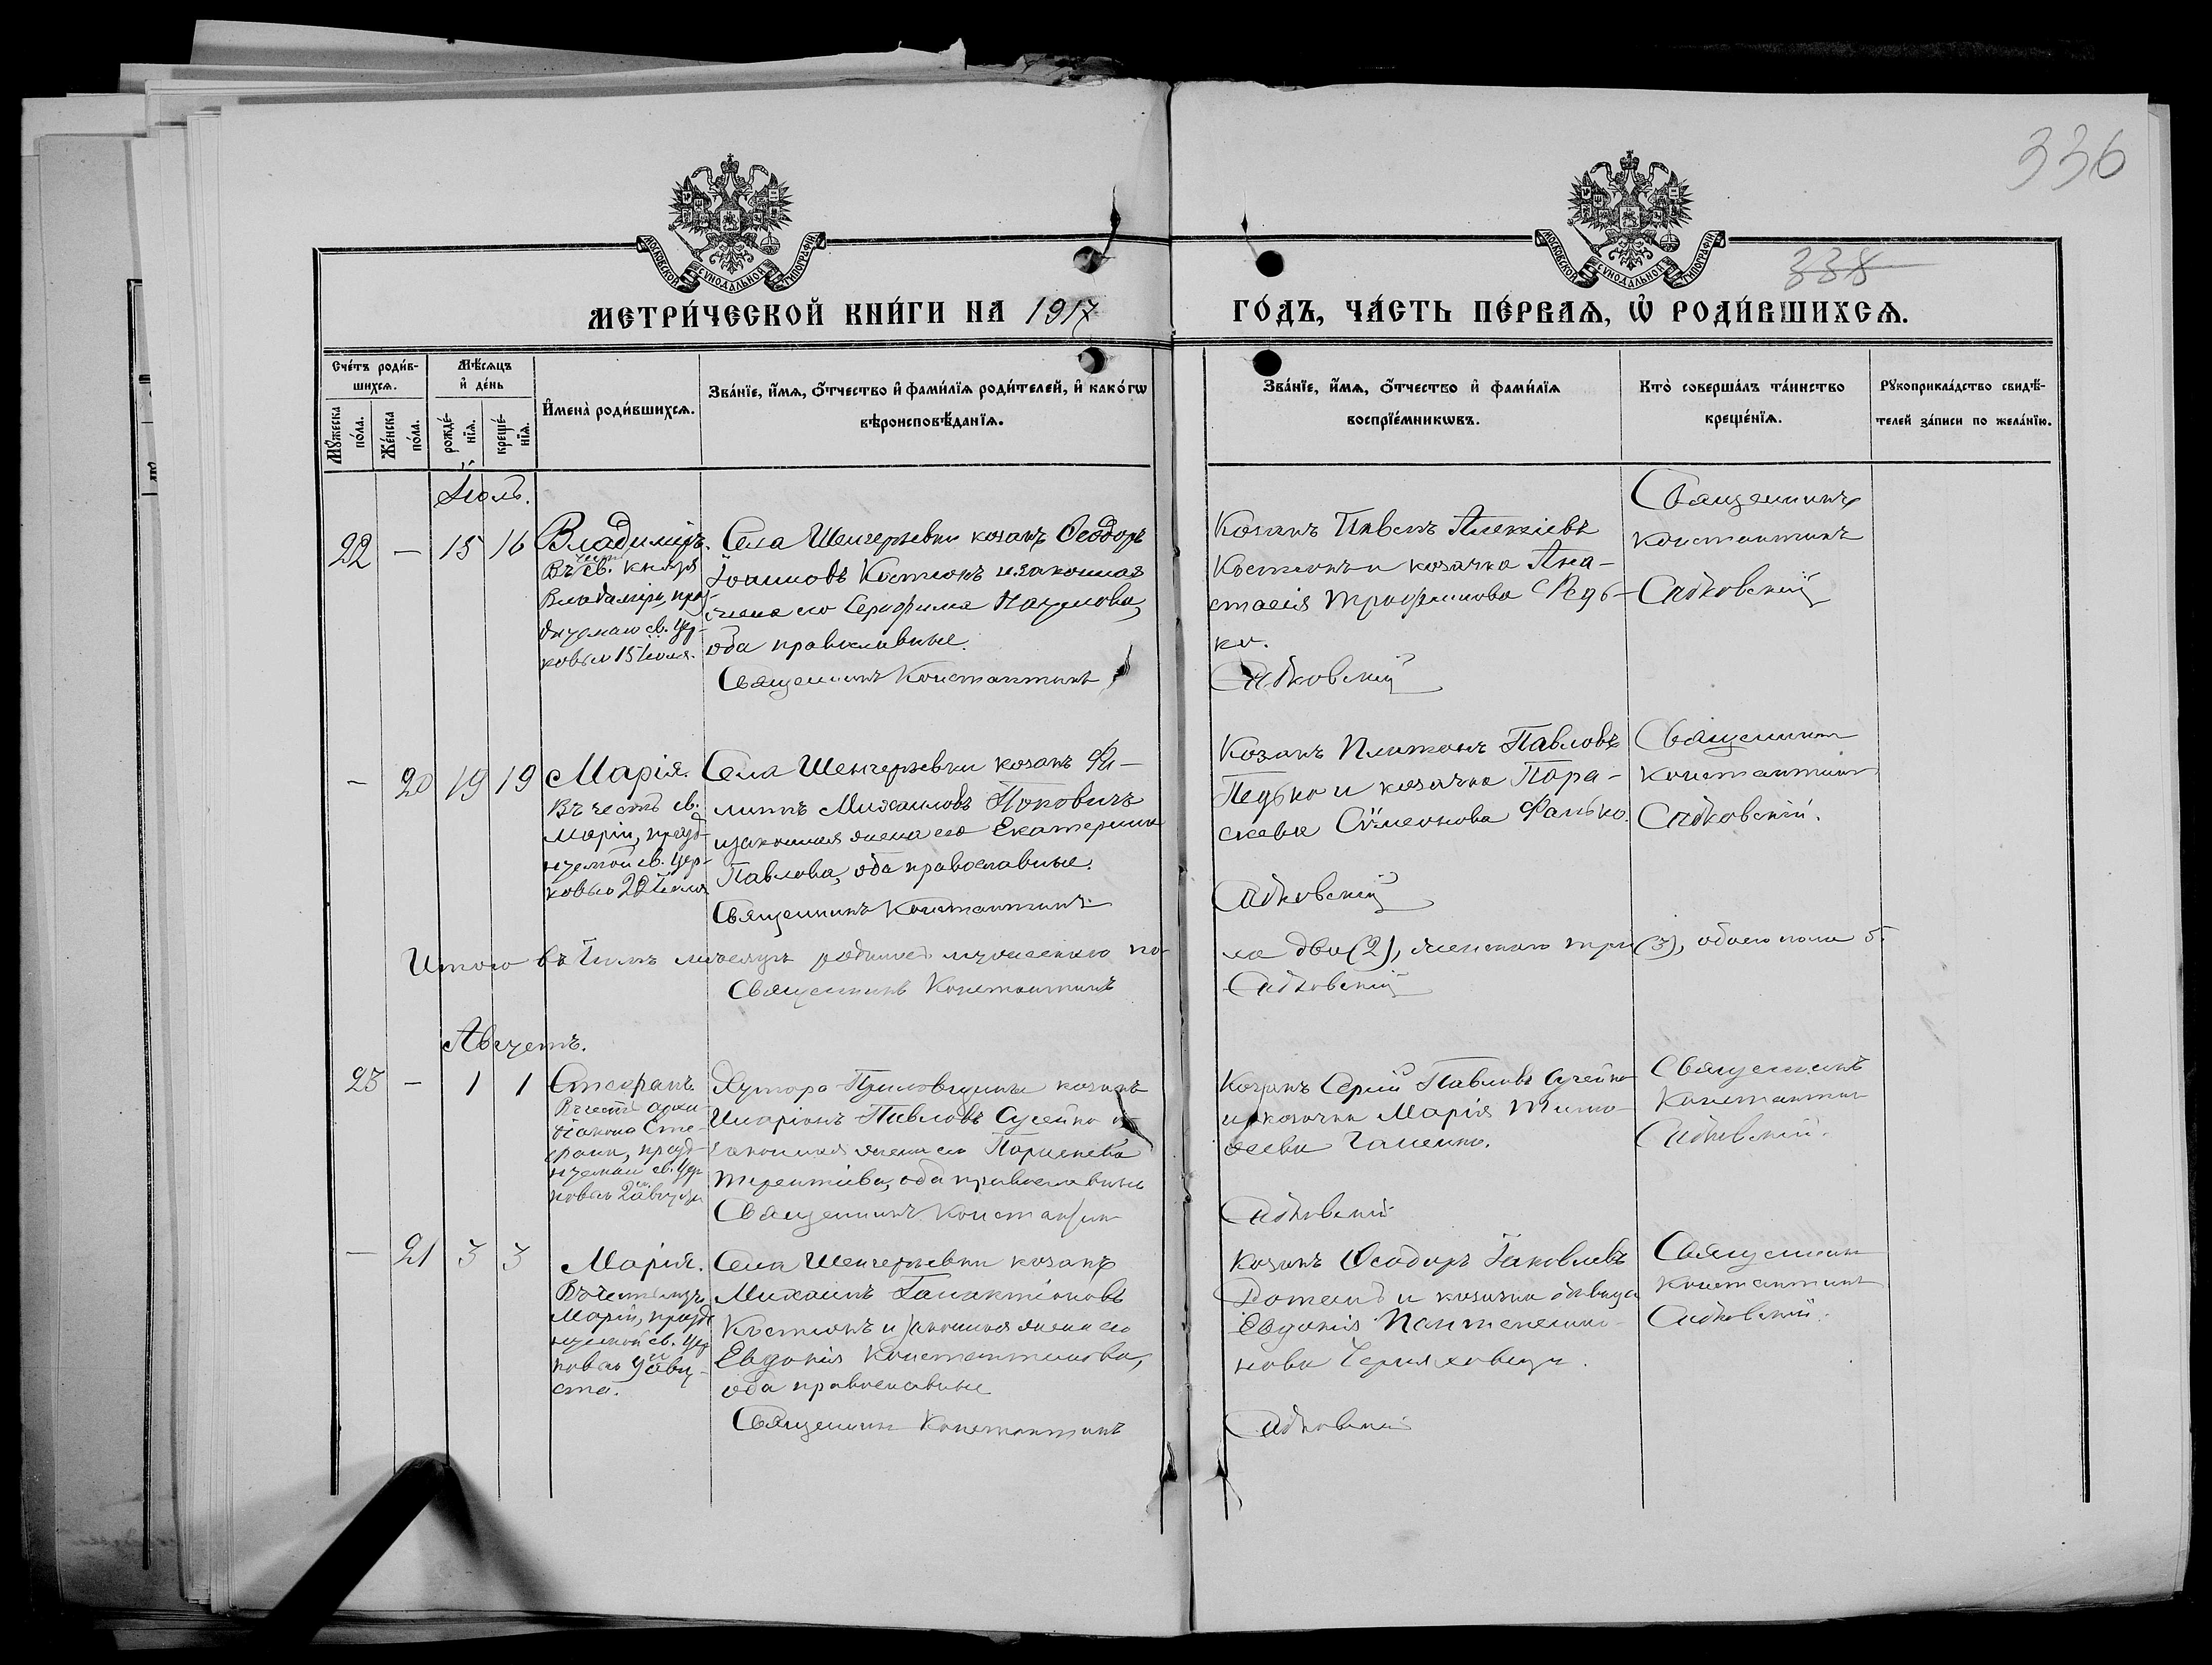 336
МОСКОВСКОЙ СѴНОДАЛЬНОЙ ТИПОГРАФІИ
МОСКОВСКОЙ СѴНОДАЛЬНОЙ ТИПОГРАФІИ
338
МЕТРИ́ЧЕСКОЙ КНИ́ГИ НА 1917
ГО́ДЪ, ЧА́СТЬ ПЕ́РВАѦ, Ѽ РОДИ́ВШИХСѦ.
Сче́тъ роди́в-
шихсѧ.
Мꙋ́жеска по́ла.
Же́нска по́ла.
Мѣ́сѧцъ
и҆ де́нь
рожде́-нїѧ.
креще́-нїѧ.
И҆мена̀ роди́вшихсѧ.
Зва́нїе, и҆́мѧ, ѻ҆́тчество и҆ фами́лїѧ роди́телей, и҆ како́гѡ
вѣроисповѣ́данїѧ.
Зва́нїе, и҆́мѧ, ѻ҆́тчество и҆ фами́лїѧ
воспрїе́мникѡвъ.
Кто̀ соверша́лъ та́инство
креще́нїѧ.
Рꙋкоприкла́дство свидѣ́-
телей за́писи по жела́нїю.
Іюль.
22 — 15 16 Владиміръ.
Въ честь св. князя
Владиміра, праз-
днуемаго св. Цер-
ковью 15 Іюля.
Села Шенгерѣевки козакъ Ѳеодоръ
Іоанновъ Костюкъ и законная
жена его Серафима Наумова,
оба православные.
Священникъ Константинъ
Козакъ Павелъ Алексіевъ
Костюкъ и козачка Ана-
стасія Трофимова Редь-
ко.
Садковскій
Священникъ
Константинъ
Садковскій
— 20 19 19 Марія.
Въ честь св.
Маріи, празд-
нуемой св. Цер-
ковью 22 Іюля
Села Шенгерѣевки козакъ Фи-
липпъ Михаиловъ Поповичъ
и законная жена его Екатерина
Павлова, оба православные.
Священникъ Константинъ
Козакъ Платонъ Павловъ
Педько и козачка Пара-
скева Сѵмеонова Фалько.
Садковскій
Священникъ
Константинъ
Садковскій.
Итого въ Іюлѣ мѣсяцѣ родилось мужескаго по-
ла два (2), женскаго три (3), обоего пола 5.
Священникъ Константинъ
Садковскій
Августъ.
23 — 1 1 Стефанъ
Въ честь архи-
діакона Сте-
фана, празд-
нуемаго св. Цер-
ковью 2 августа
Хутора козакъ
Иларіонъ Павловъ и
законная жена его Параскева
Терентіева, оба православные
Священникъ Константинъ
Козакъ Сергій Павловъ
и козачка Марія Тимо-
ѳеева
Садковскій
Священникъ
Константинъ
Садковскій.
— 21 3 3 Марія.
Въ честь муч.
Маріи, празд-
нуемой св. Цер-
ковью 9 Авгу-
ста.
Села Шенгерѣевки козакъ
Михаилъ Галактіоновъ
Костюкъ и законная жена его
Евдокія Константинова,
оба православные
Священникъ Константинъ
Козакъ Ѳеодоръ Іаковлевъ
и козачка дѣвица
Евдокія Пантелеимо-
нова
Садковскій
Священникъ
Константинъ
Садковскій.